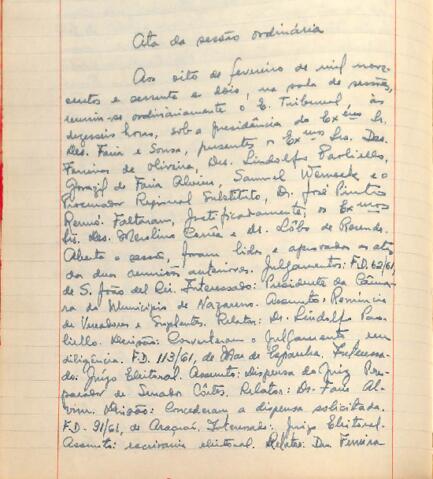 Ata da sessão ordinária
Aos oito de fevereiro de mil nove-
centos e sessenta e dois, na sala de sessões,
reuniu-se ordinàriamente o E. Tribunal, às
dezesseis horas, sob a presidência do Exmo Sr.
Des. Faria e Sousa, presentes os Exmos Srs. Des.
Ferreira de Oliveira, Drs. Lindolfo Paoliello,
Gorazil de Faria Alvim, Samuel Werneck e o
Procurador Regional Substituto, Dr. José Pinto
Renó. Faltaram, justificadamente, os Exmos
Srs. Des. Merolino Corrêa e Dr. Lôbo de Resende.
Aberta a sessão, foram lidas e aprovadas as atas
das duas reuniões anteriores. Julgamentos: F.D. 62/61,
de S. João del Rei. Interessado: Presidente da Câma-
ra do Município de Nazareno. Assunto: Renúncia
de Vereadores e Suplentes. Relator: Dr. Lindolfo Pao-
liello. Decisão: Converteram o julgamento em
diligência. F.D. 113/61, de Mar de Espanha. Interessa-
do: Juízo Eleitoral. Assunto: dispensa do Juiz Pre-
parador de Senador Côrtes. Relator: Dr. Faria Al-
vim. Decisão: Concederam a dispensa solicitada.
F.D. 91/61, de Araçuaí. Interessado: Juízo Eleitoral.
Assunto: escrivania eleitoral. Relator: Des. Ferreira